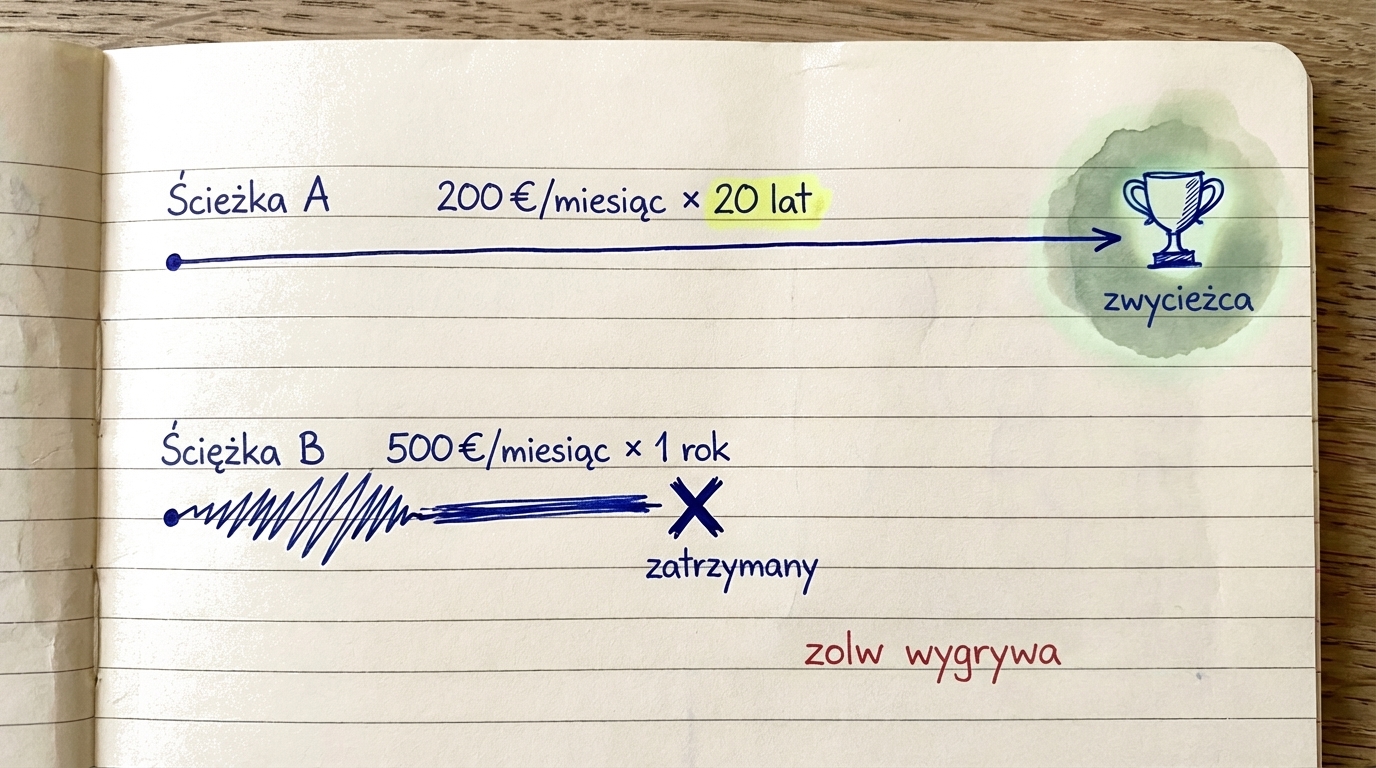 Ścieżka A 200 €/miesiąc × 20 lat
zwycieżca
Śćiężka B 500 €/miesiąc × 1 rok
zatrzymany
zolw wygrywa